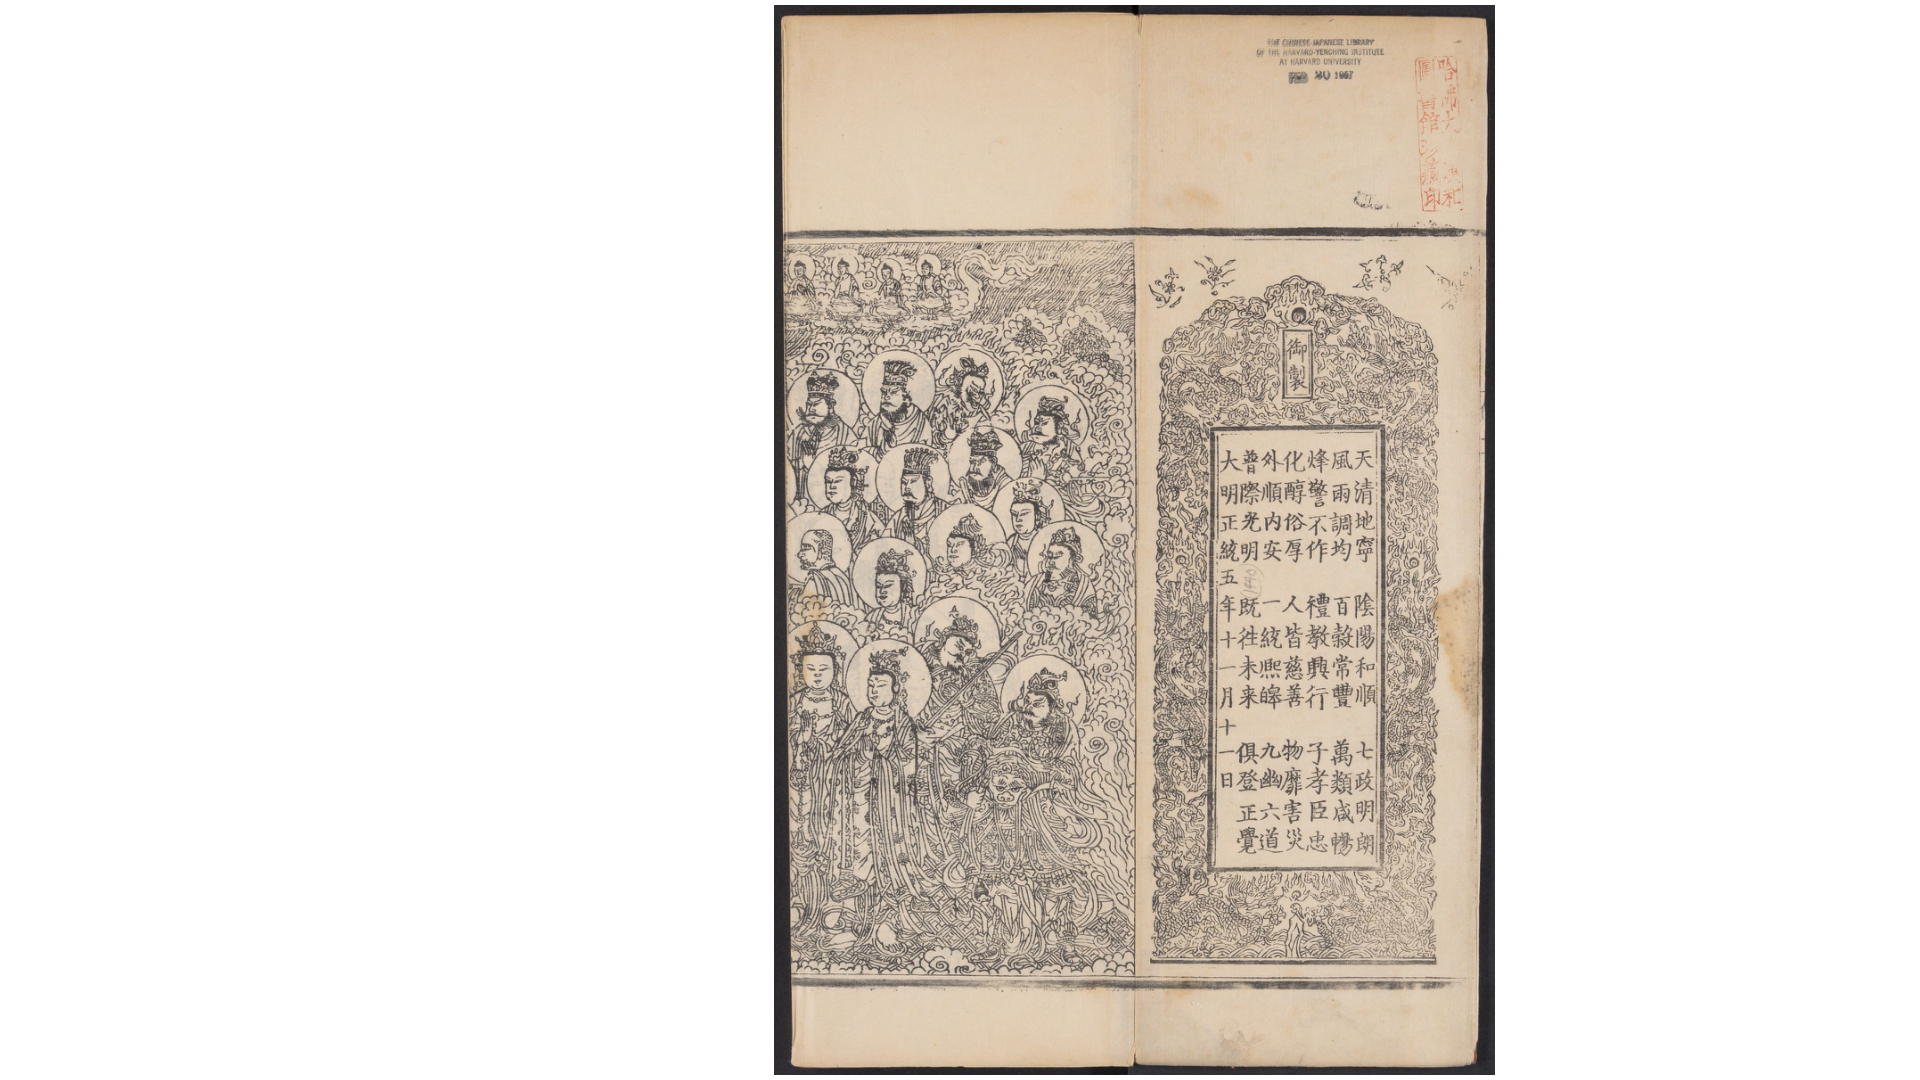 THE CHINESE-JAPANESE LIBRARY
OF THE HARVARD-YENCHING INSTITUTE
AT HARVARD UNIVERSITY
FEB 20 1957
哈佛大 漢和
圖書館珍藏印
御製
天清地寧 陰陽和順 七政明朗
風雨調均 百穀常豐 萬類咸暢
烽警不作 禮教興行 子孝臣忠
化醇俗厚 人皆慈善 物靡害災
外順內安 一統熙皞 九幽六道
普際光明 既往未来 俱登正覺
大明正統五年十一月十一日